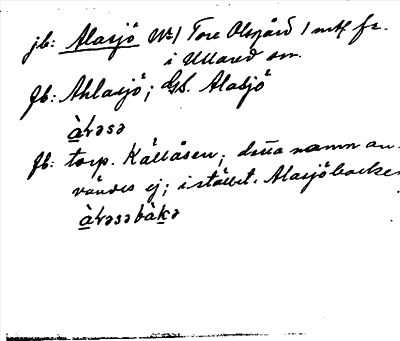 jb: Alasjö No 1 Tore Olsgård 1 mtl fr.
i Ullared sn.
Jb: Ahlasjö; GS. Alasjö
àɫəsə
Jb: torp. Källåsen; detta namn an-
vändes ej; i stället. Alasjöbacken
àɫəsəbàkə